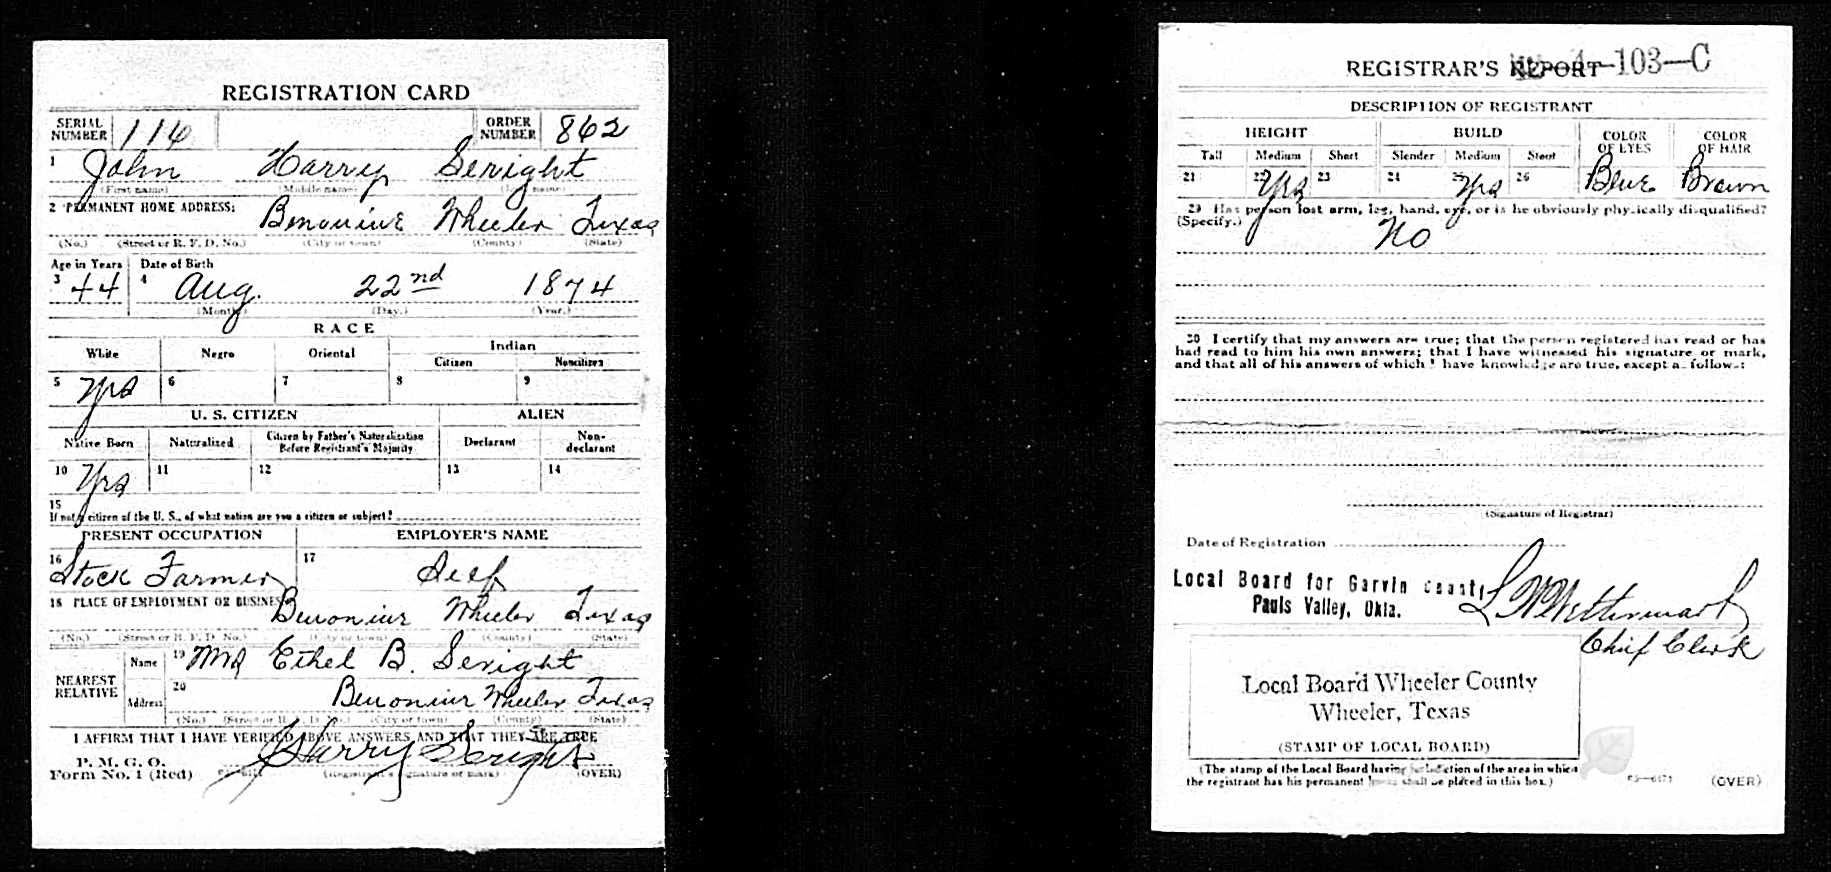 REGISTRATION CARD
SERIAL NUMBER 116 ORDER NUMBER 862
1 John Harry Seright
(First name) (Middle name) (Last name)
2 PERMANENT HOME ADDRESS: Benonine Wheeler Texas
(No.) (Street or R. F. D. No.) (City or town) (County) (State)
Age in Years Date of Birth
3 44 4 Aug. 22nd 1874
(Month.) (Day.) (Year.)
RACE
White Negro Oriental Indian
Citizen Noncitizen
5 Yes 6 7 8 9
U. S. CITIZEN ALIEN
Native Born Naturalized Citizen by Father's Naturalization Before Registrant's Majority Declarant Non-declarant
10 Yes 11 12 13 14
15
If not a citizen of the U. S., of what nation are you a citizen or subject?
PRESENT OCCUPATION EMPLOYER'S NAME
16 Stock Farmer 17 Self
18 PLACE OF EMPLOYMENT OR BUSINESS: Benonine Wheeler Texas
(No.) (Street or R. F. D. No.) (City or town) (County) (State)
NEAREST RELATIVE Name 19 Mrs Ethel B. Seright
Address 20 Benonine Wheeler Texas
(No.) (Street or R. F. D. No.) (City or town) (County) (State)
I AFFIRM THAT I HAVE VERIFIED ABOVE ANSWERS AND THAT THEY ARE TRUE
P. M. G. O.
Form No. 1 (Red) Harry Seright
(Registrant's signature or mark) (OVER)
REGISTRAR'S REPORT 4-103-C
DESCRIPTION OF REGISTRANT
HEIGHT BUILD COLOR OF EYES COLOR OF HAIR
Tall Medium Short Slender Medium Stout
21 22 Yes 23 24 25 Yes 26 Blue Brown
29 Has person lost arm, leg, hand, eye, or is he obviously physically disqualified?
(Specify.) No
30 I certify that my answers are true; that the person registered has read or has
had read to him his own answers; that I have witnessed his signature or mark,
and that all of his answers of which I have knowledge are true, except as follows:
(Signature of Registrar)
Date of Registration
Local Board for Garvin County
Pauls Valley, Okla.
Chief Clerk
Local Board Wheeler County
Wheeler, Texas
(STAMP OF LOCAL BOARD)
(The stamp of the Local Board having jurisdiction of the area in which
the registrant has his permanent home shall be placed in this box.)
(OVER)